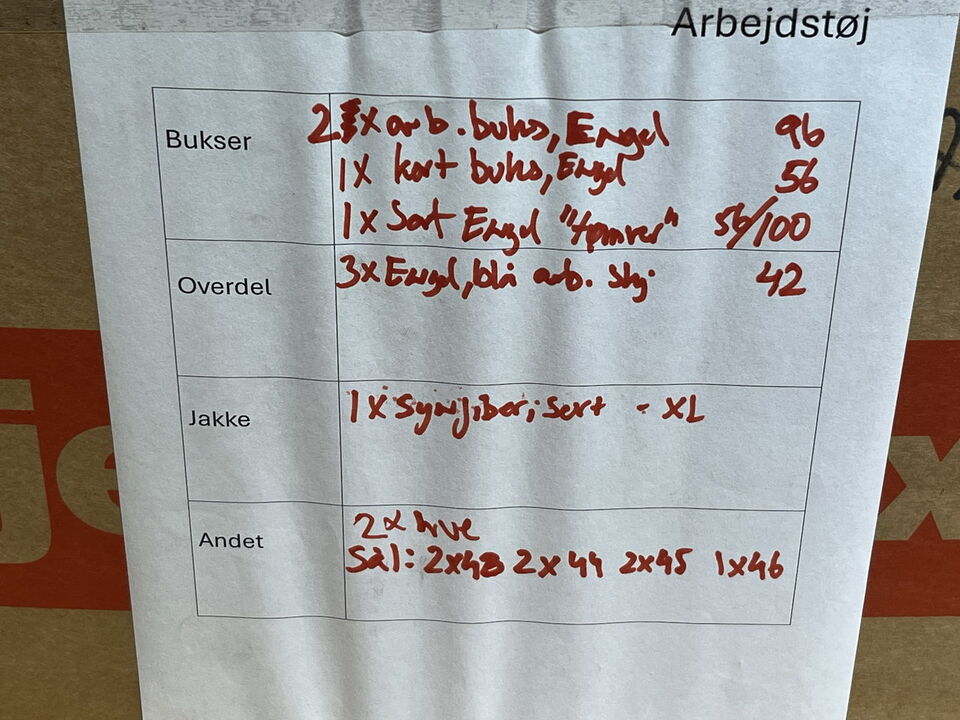 Arbejdstøj
Bukser
2 x arb. buks, Engel 96
1 x kort buks, Engel 56
1 x Sort Engel "tømrer" 56/100
Overdel
3x Engel, blå arb. skj. 42
Jakke
1 x synljbar, sort - XL
Andet
2 x hue
Sål: 2x43 2x44 2x45 1x46
je x